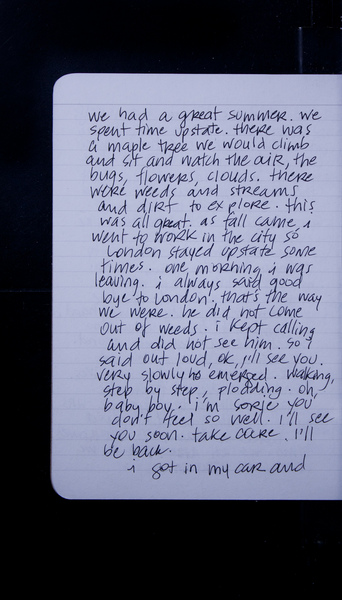 we had a great summer. we
spent time upstate. there was
a maple tree we would climb
and sit and watch the air, the
bugs, flowers, clouds. there
were weeds and streams
and dirt to explore. this
was all great. as fall came i
went to work in the city so
london stayed upstate some
times. one morning i was
leaving. i always said good
bye to london. that's the way
we were. he did not come
out of weeds. i kept calling
and did not see him. so i
said out loud, ok, i'll see you.
very slowly he emerged. walking,
step by step, plodding. oh,
baby boy. i'm sorie you
don't feel so well. i'll see
you soon. take care. i'll
be back.
i got in my car and